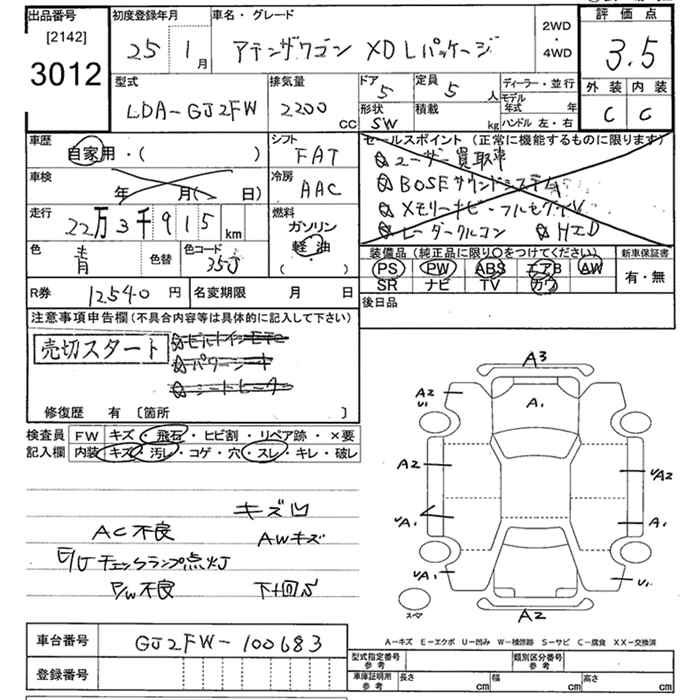 出品番号 初度登録年月 車名・グレード 2WD・4WD 評価点
[2142]
3012
25 1月 アテンザワゴン XD Lパッケージ 3.5
型式 排気量 ドア 5 定員 5人 ディーラー・並行 外装 内装
LDA-GJ2FW 2200cc 形状 SW 積載 kg モデル年式 年 C C
ハンドル 左・右
車歴 自家用・( ) シフト FAT セールスポイント (正常に機能するものに限ります)
ユーザー買取車
車検 年 月( 日) 冷房 AAC BOSEサウンドシステム
メモリーナビ・フルセグTV
走行 22万3千915km 燃料 ガソリン 軽油 レーダークルコン HID
色 青 色替 色コード 35J 装備品 (純正品に限り○をつけてください) 新車保証書
PS PW ABS エアB AW 有・無
SR ナビ TV カワ
R券 12540円 名変期限 月 日 後日品
注意事項申告欄(不具合内容等は具体的に記入して下さい)
売切スタート
パワーシート
シートヒーター
修復歴 有 [箇所 ]
検査員 FW キズ・飛石・ヒビ割・リペア跡・×要
記入欄 内装 キズ・汚レ・コゲ・穴・スレ・キレ・破レ
A3
A2
U1
A1
A2
UA2
UA1
A1
UA1
U1
スペア
A2
キズ凹
AC不良 AWキズ
E/Gチェックランプ点灯
P/W不良 下廻S
A-キズ E-エクボ U-凹み W-補修跡 S-サビ C-腐食 XX-交換済
車台番号 GJ2FW-100683
型式指定番号 参考 類別区分番号 参考
登録番号
車庫証明所 参考 長さ cm 幅 cm 高さ cm